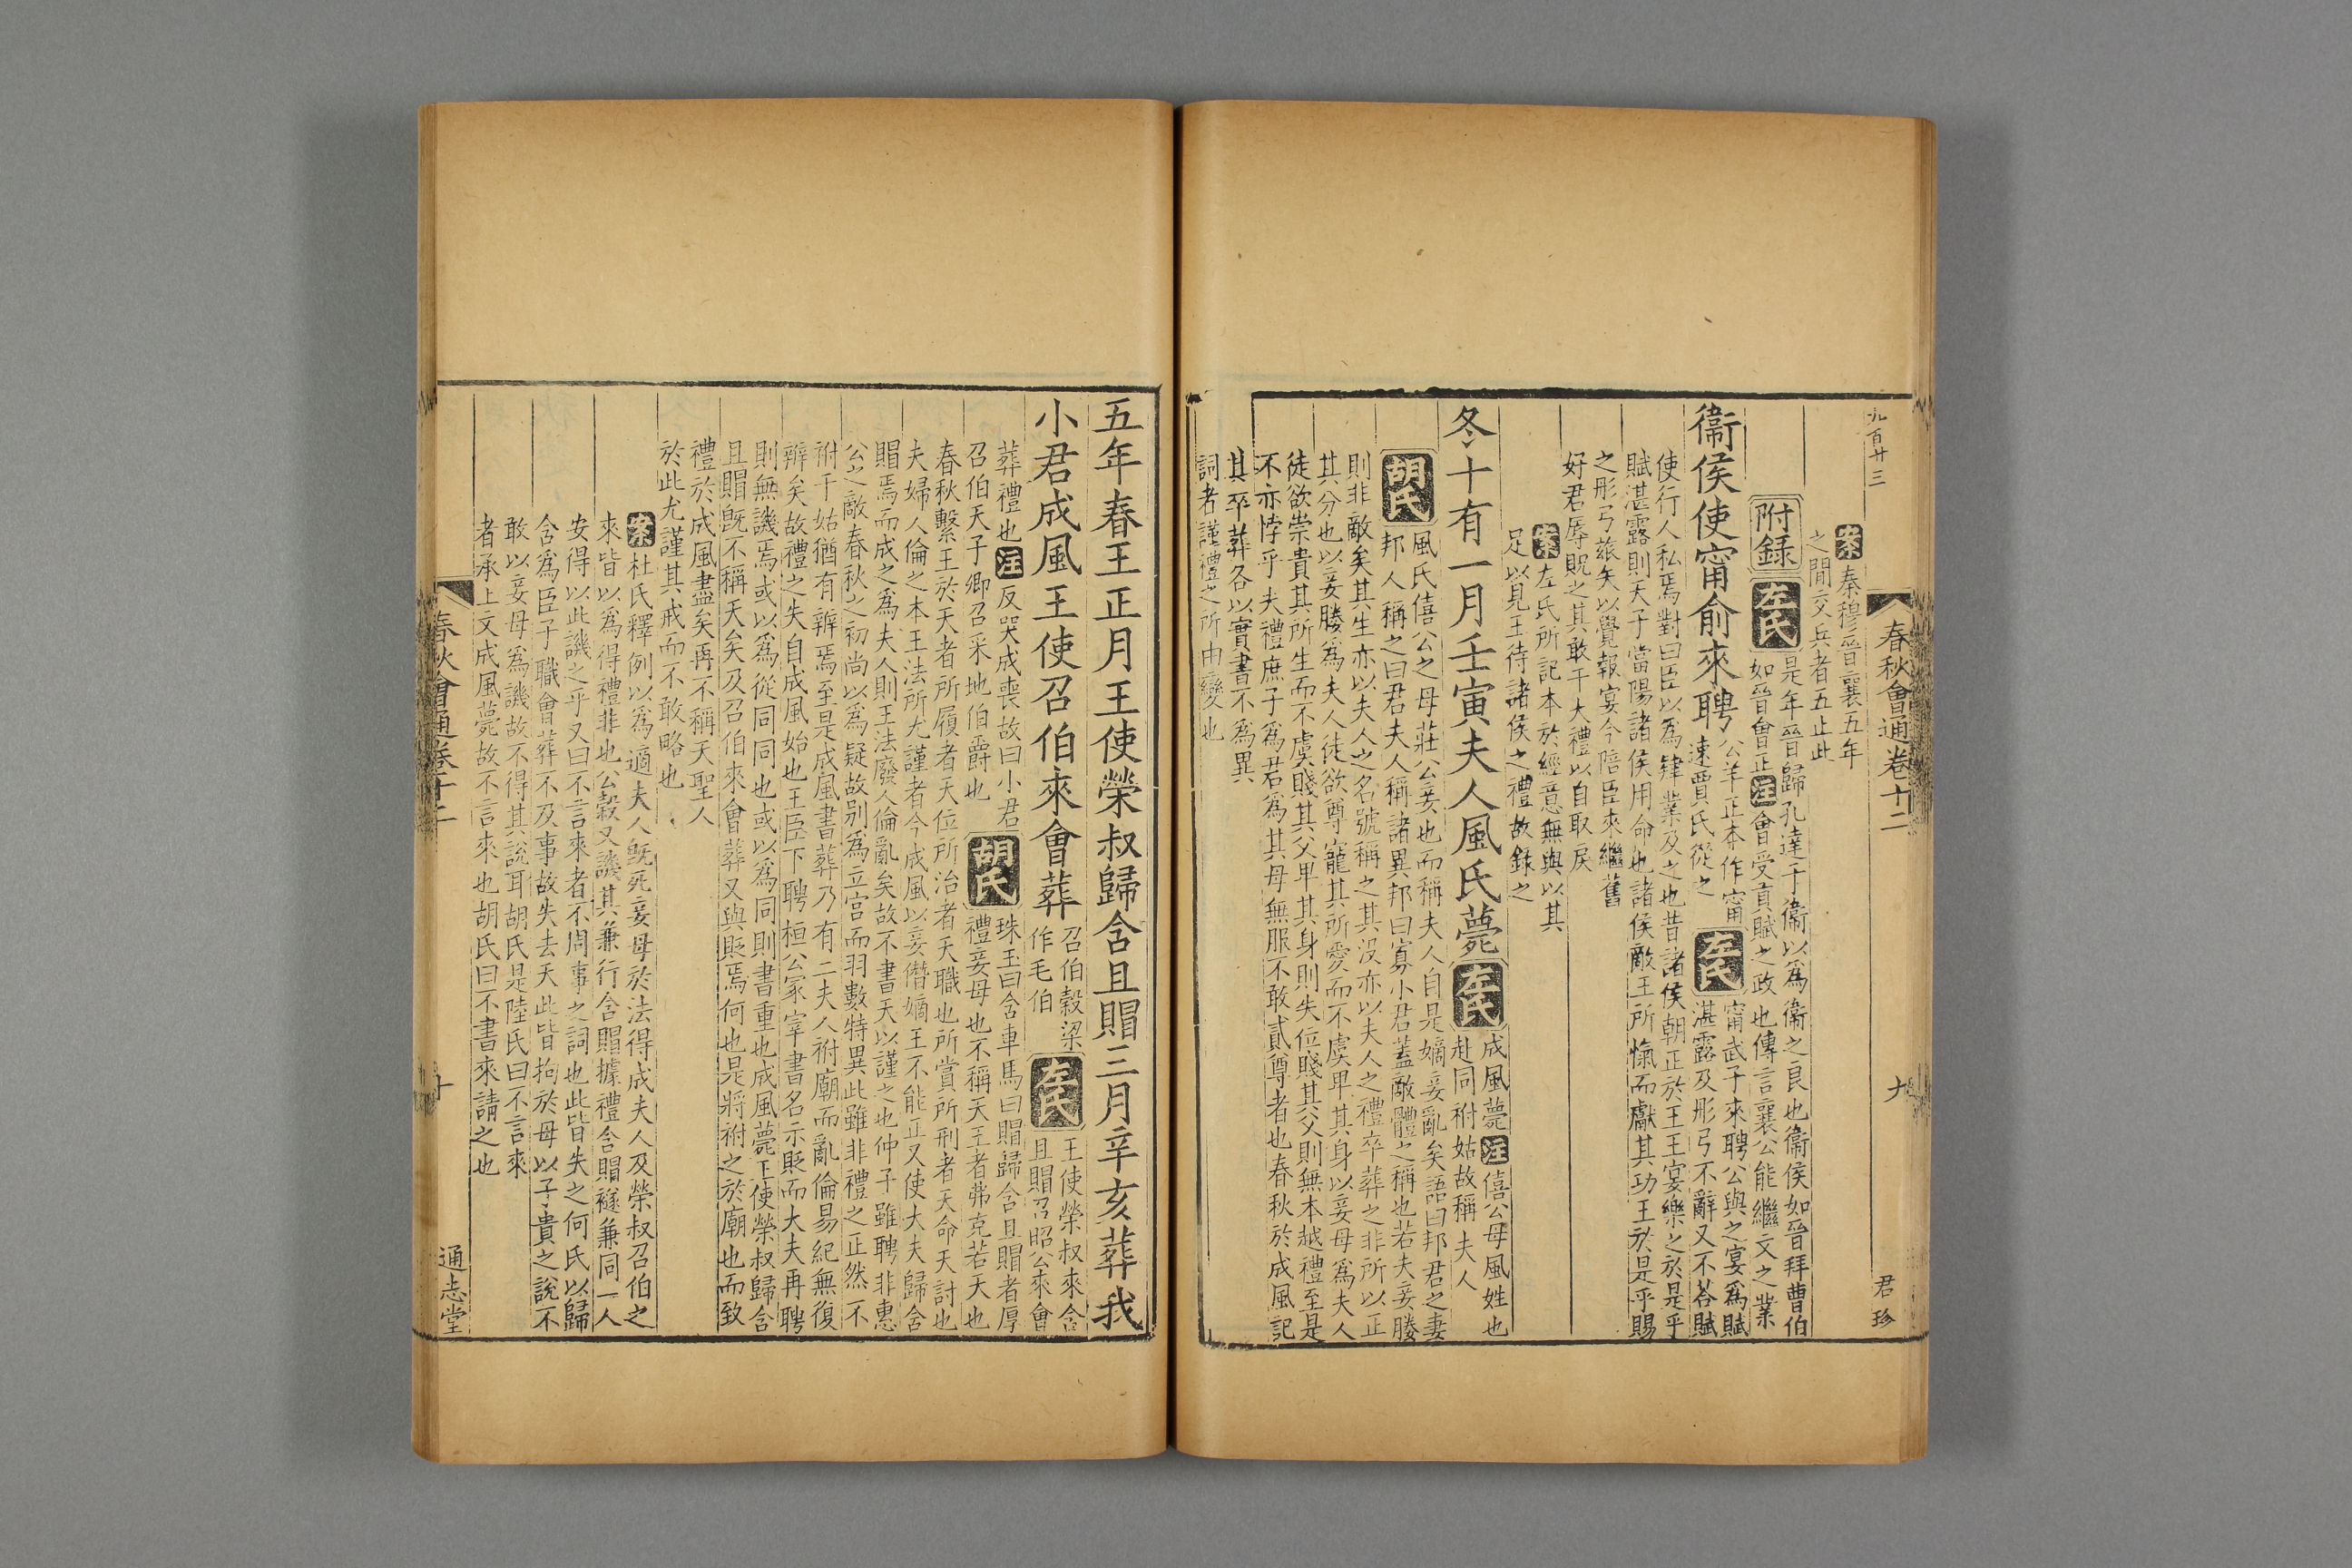 九百廿三
春秋會通卷十二
九
君珍
案秦穆晉襄五年
之閒交兵者五止此
附録左氏是年晉歸孔達于衞以爲衞之良也衞侯如晉拜曹伯
如晉會正注會受貢賦之政也傳言襄公能繼文之業
衞侯使甯俞來聘
公羊正本作甯左氏甯武子來聘公與之宴爲賦
速賈氏從之湛露及彤弓不辭又不荅賦
使行人私焉對曰臣以爲肄業及之也昔諸侯朝正於王王宴樂之於是乎
賦湛露則天子當陽諸侯用命也諸侯敵王所愾而獻其功王於是乎賜
之彤弓玈矢以覺報宴今陪臣來繼舊
好君辱貺之其敢干大禮以自取戾
案左氏所記本於經意無與以其
足以見王待諸侯之禮故録之
冬十有一月壬寅夫人風氏薨
左氏成風薨注僖公母風姓也
赴同祔姑故稱夫人
胡氏風氏僖公之母莊公妾也而稱夫人自是嫡妾亂矣語曰邦君之妻
邦人稱之曰君夫人稱諸異邦曰寡小君蓋敵體之稱也若夫妾媵
則非敵矣其生亦以夫人之名號稱之其没亦以夫人之禮卒葬之非所以正
其分也以妾媵爲夫人徒欲尊寵其所愛而不虞卑其身以妾母爲夫人
徒欲崇貴其所生而不虞賤其父卑其身則失位賤其父則無本越禮至是
不亦悖乎夫禮庶子爲君爲其母無服不敢貳尊者也春秋於成風記
其卒葬各以實書不爲異
詞者謹禮之所由變也
五年春王正月王使榮叔歸含且賵三月辛亥葬我
小君成風王使召伯來會葬
召伯穀梁左氏王使榮叔來含
作毛伯且賵召昭公來會
葬禮也注反哭成喪故曰小君胡氏珠玉曰含車馬曰賵歸含且賵者厚
召伯天子卿召采地伯爵也禮妾母也不稱天王者弗克若天也
春秋繫王於天者所履者天位所治者天職也所賞所刑者天命天討也
夫婦人倫之本王法所尤謹者今成風以妾僭嫡王不能正又使大夫歸含
賵焉而成之爲夫人則王法廢人倫亂矣故不書天以謹之也仲子雖聘非惠
公之敵春秋之初尚以爲疑故别爲立宫而羽數特異此雖非禮之正然不
祔于姑猶有辨焉至是成風書葬乃有二夫人祔廟而亂倫易紀無復
辨矣故禮之失自成風始也王臣下聘桓公冢宰書名示貶而大夫再聘
則無譏焉或以爲從同同也或以爲同則書重也成風薨王使榮叔歸含
且賵旣不稱天矣及召伯來會葬又與貶焉何也是將祔之於廟也而致
禮於成風盡矣再不稱天聖人
於此尤謹其戒而不敢略也
案杜氏釋例以爲適夫人旣死妾母於法得成夫人及榮叔召伯之
來皆以爲得禮非也公穀又譏其兼行含賵據禮含賵襚兼同一人
安得以此譏之乎又曰不言來者不周事之詞也此皆失之何氏以歸
含爲臣子職會葬不及事故失去天此皆拘於母以子貴之說不
敢以妾母爲譏故不得其說耳胡氏是陸氏曰不言來
者承上文成風薨故不言來也胡氏曰不書來請之也
春秋會通卷十二
十
通志堂